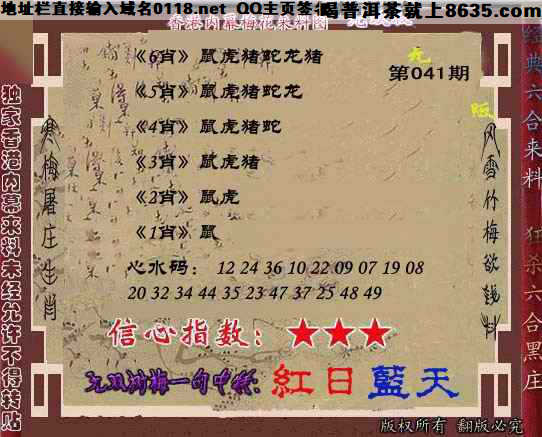 地址栏直接输入域名0118.net QQ主页签
喝普洱茶就上8635.com
香港内幕梅花来料图
第041期
《6肖》鼠虎猪蛇龙猪
《5肖》鼠虎猪蛇龙
《4肖》鼠虎猪蛇
《3肖》鼠虎猪
《2肖》鼠虎
《1肖》鼠
心水码： 12 24 36 10 22 09 07 19 08
20 32 34 44 35 23 47 37 25 48 49
信心指数：★★★
一句中特：紅日藍天
版权所有 翻版必究
独家香港内幕来料未经允许不得转贴
寒梅屠庄生肖
风雪竹梅欲钱料
经典六合来料
狂杀六合黑庄